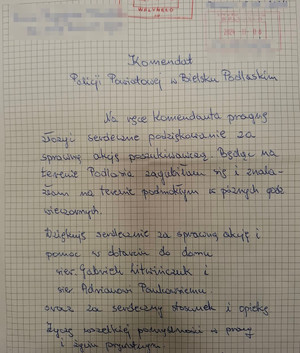 WPŁYNĘŁO
Komendat
Policji Powiatowej w Bielsku Podlaskim
Na ręce Komendanta pragnę
złożyć serdeczne podziękowanie za
sprawną akcję poszukiwawczą. Będąc na
terenie Podlasia zagubiłam się i znala-
złam na terenie podmokłym w późnych godz
wieczornych.
Dziękuję serdecznie za sprawną akcję i
pomoc w dotarciu do domu
sier. Gabriel Litwińczuk i
sier. Adrianowi
oraz za serdeczny stosunek i opiekę
Życzę wszelkiej pomyślności w pracy
i życiu prywatnym.